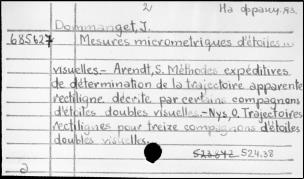 2 На франц. яз.
Dommanget, J.
685627 Mesures micrometriques d'étoiles
visuelles.- Arendt, S. Méthodes expéditives
de détermination de la trajectoire apparente
rectiligne décrite par certains compagnons
d'étoiles doubles visuelles.-Nys, O. Trajectoires
rectilignes pour treize compagnons d'étoiles
doubles visuelles.
524.38